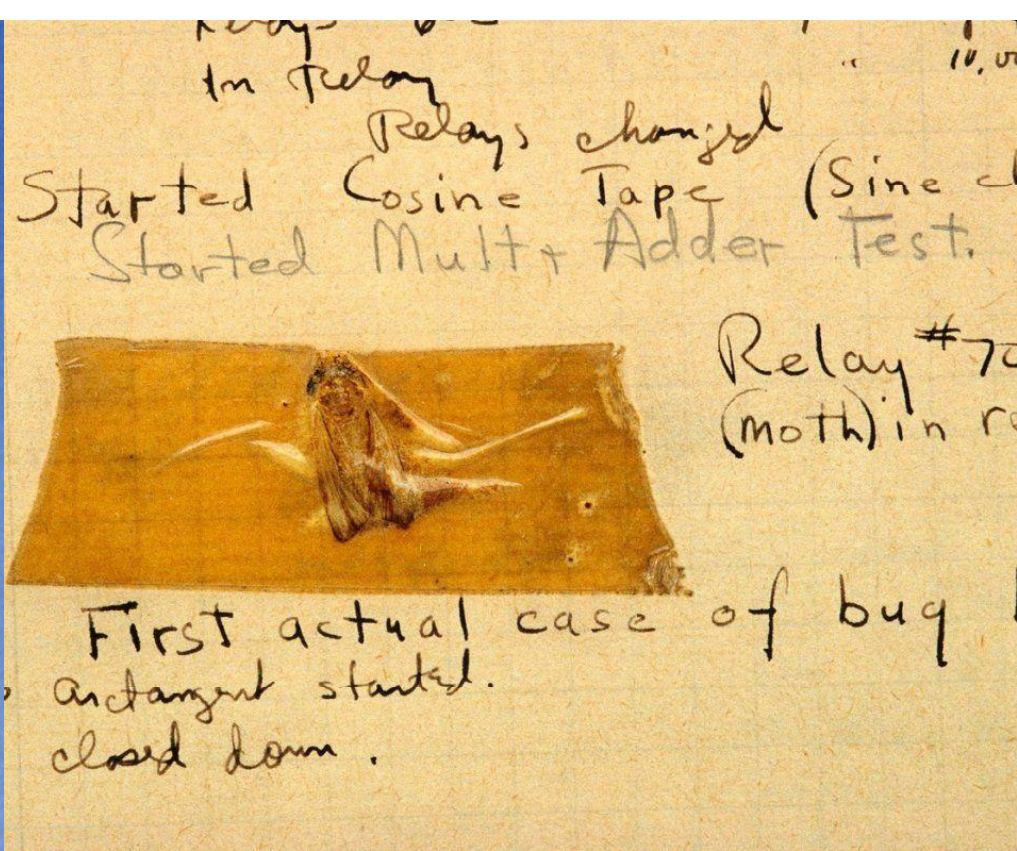 In Relay
Relays changed
Started Cosine Tape (Sine
Started Mult + Adder Test.
Relay #70
(moth) in
First actual case of bug
arctangent started.
closed down.